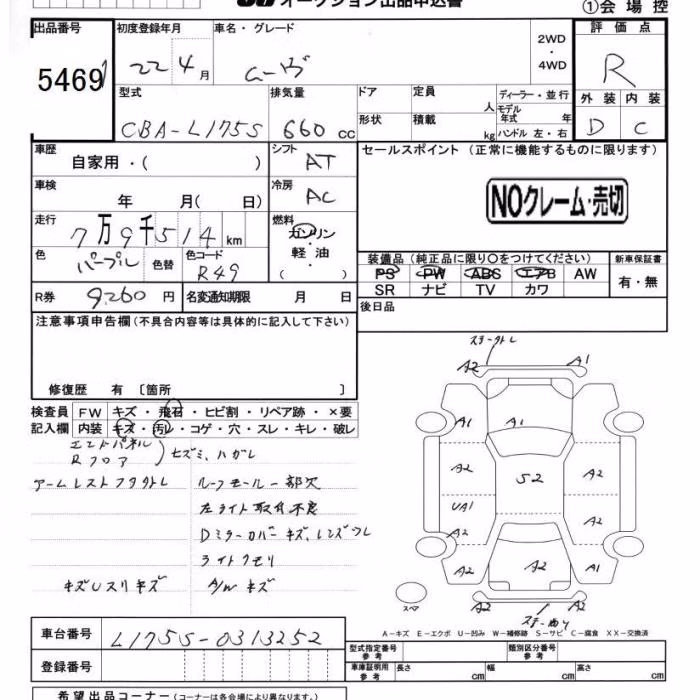 オークション出品申込書
①会場控
出品番号 初度登録年月 車名・グレード 2WD・4WD 評価点
5469 22 4月 ムーヴ R
型式 排気量 ドア 定員 人 ディーラー・並行 外装 内装
CBA-L175S 660 cc 形状 積載 kg モデル年式 年式 ハンドル 左・右 D C
車歴 自家用・( ) シフト AT セールスポイント (正常に機能するものに限ります)
車検 年 月( 日) 冷房 AC NOクレーム・売切
走行 7万9千514km 燃料 ガソリン 軽油 ( )
色 パープル 色替 色コード R49 装備品 (純正品に限り〇をつけてください) 新車保証書
PS PW ABS エアB AW 有・無
SR ナビ TV カワ
R券 9260円 名変通知期限 月 日 後日品
注意事項申告欄 (不具合内容等は具体的に記入して下さい)
修復歴 有 [箇所 ]
検査員 FW キズ・飛石・ヒビ割・リペア跡・×要
記入欄 内装 キズ・汚レ・コゲ・穴・スレ・キレ・破レ
エンドパネル
Rフロア ヒズミ、ハガレ
アームレストフタクトレ ルーフモール一部欠
左ライト取付不良
Dミラーカバーキズ、レンズワレ
ライトクモリ
キズUスリキズ A/Wキズ
A2 A1
A2 A1 A2
A2 S2 A2
UA1
A2 A2
A2 A2 A2
A2 A2
スペア
A-キズ E-エクボ U-凹み W-補修跡 S-サビ C-腐食 XX-交換済
車台番号 L175S-0313252 型式指定番号 参考 類別区分番号 参考
登録番号 車庫証明用 参考 長さ cm 幅 cm 高さ cm
希望出品コーナー (コーナーは各会場により異なります。)